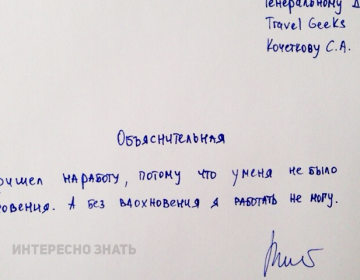 Генеральному Д
Travel Geeks
Кочеткову С.А.
Объяснительная
ришел на работу, потому что у меня не было
новения. А без вдохновения я работать не могу.
ИНТЕРЕСНО ЗНАТЬ